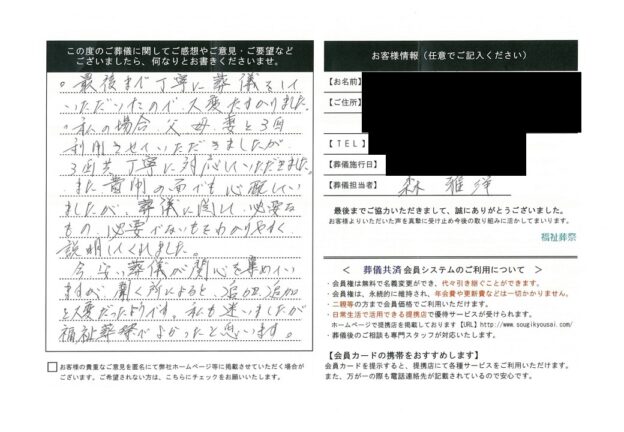 この度のご葬儀に関してご感想やご意見・ご要望など
ございましたら、何なりとお書きくださいませ。
。最後まで丁寧に葬儀をして
いただいたので大変たすかりました。
。私の場合父母妻と3回
利用させていただきましたが
3回共丁寧に対応していただきました。
また費用の面でも心配してい
ましたが、葬儀に関して必要な
もの、必要でないをわかりやすく
説明してくれました。
今安い葬儀が関心を集めてい
ますが聞く所によると追加追加
と大変だったようです。私も迷いましたが
福祉葬祭でよかったと思います。
お客様の貴重なご意見を匿名にて弊社ホームページ等に掲載させていただく場合が
ございます。ご希望されない方は、こちらにチェックをお願いいたします。
お客様情報（任意でご記入ください）
【お名前】
【ご住所】
【ＴＥＬ】
【葬儀施行日】
【葬儀担当者】 森 雅洋
最後までご協力いただきまして、誠にありがとうございました。
お客様よりいただいた声を真摯に受け止め今後の取り組みに活かしてまいります。
福祉葬祭
＜ 葬儀共済 会員システムのご利用について ＞
・会員権は無料で名義変更ができ、代々引き継ぐことができます。
・会員権は、永続的に維持され、年会費や更新費などは一切かかりません。
・二親等の方まで会員価格でご利用いただけます。
・日常生活で活用できる提携店で優待サービスが受けられます。
ホームページで提携店を掲載しております【URL】http://www.sougikyousai.com/
・葬儀後のご相談も専門スタッフが対応いたします。
【会員カードの携帯をおすすめします】
会員カードを提示すると、提携店にて各種サービスをご利用いただけます。
また、万が一の際も電話連絡先が記載されているので安心です。